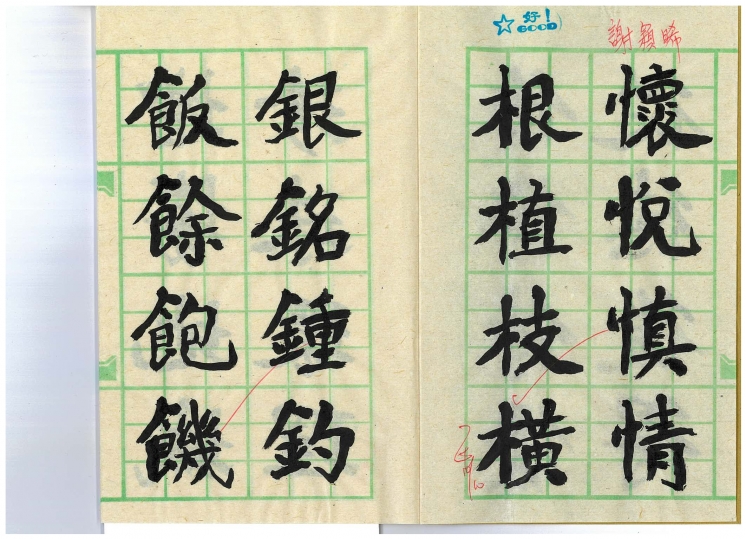 好！
GOOD
謝穎晞
懷悅慎情
根植枝橫
銀銘鍾釣
飯餘飽饑